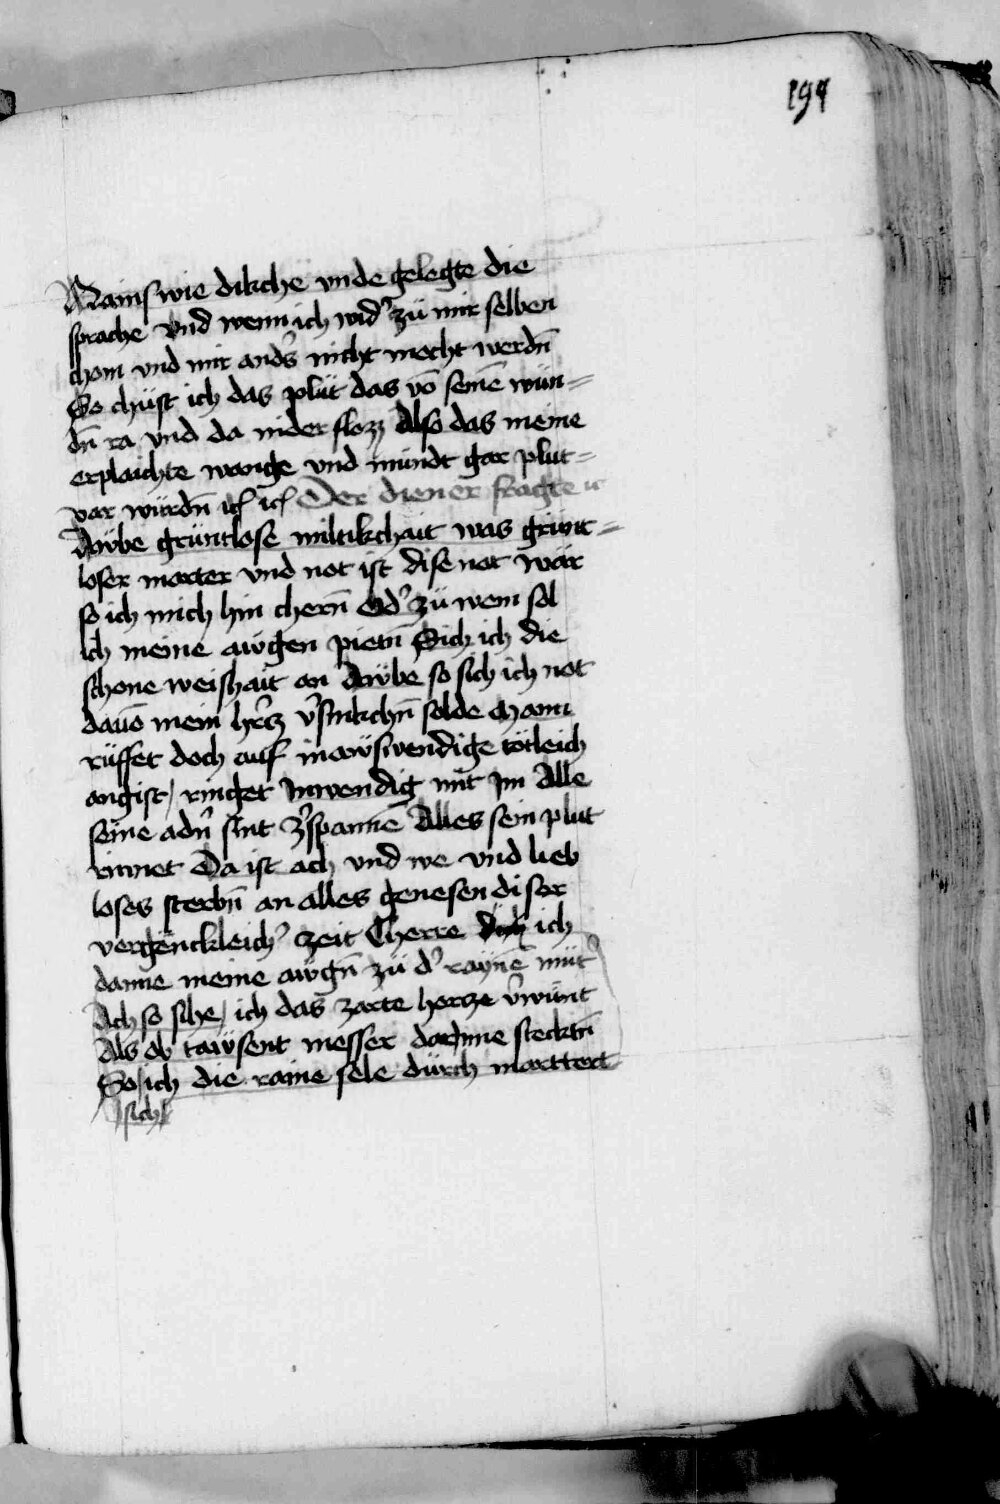 194
Mains wie dikche vnde gelegte die
sprache vnd wenn ich wid̛ zü mir selben
chom vnd mir and̛s nicht mocht werdn̄
So chüst ich das plüt das vō seinē wün=
dn̄ ra vnd da nider flozz Also das meine
erplaichte wange vnd mündt gar plut=
var würdn̄ ich ich Der diener fragte
Awbe grüntlose miltikchait was grünt=
loser marter vnd not ist dise not wär
so ich mich hin chern̄ Od̛ zü wem sol
ich meine awgen pietn̄ Sich ich die
schone weishait an Awbe so sich ich not
dauō mein hercz v̛sinkchn̄ solde Man
rüffet doch auf in awswendige tötleich
angist / ringet Inwendig mit Im Alle
seine adn̛ sint z̛spannē Alles sein plut
rinnet Da ist ach vnd we vnd lieb
loses sterbn̄ an alles genesen diser
vergēnckleich̛ zeit Cherre ich
danne meine awgn̄ zü d̛ raynē müt̛
Ach so sihe / ich das zarte hercze v̛wünt
Als ob tawsent messer darinne stecktn̄
So ich die raine sele dürch marttert
sich